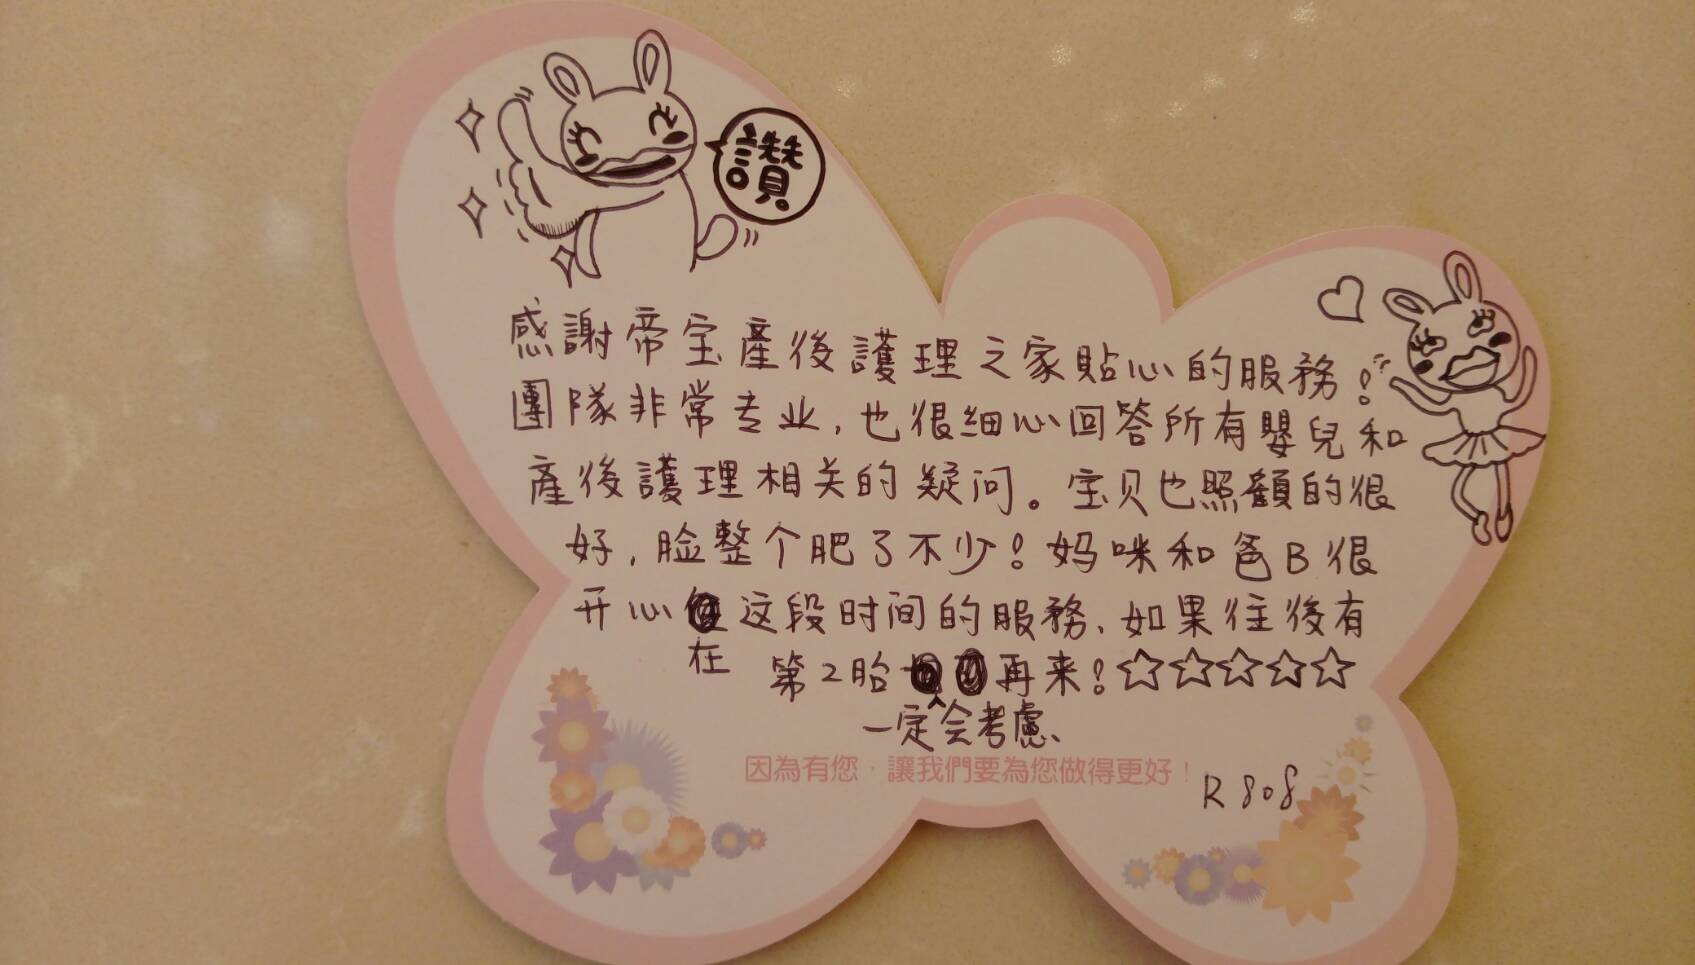 讚
感謝帝宝產後護理之家貼心的服務!
團隊非常专业,也很细心回答所有嬰兒和
產後護理相关的疑问。宝贝也照顧的很
好,脸整个肥了不少!妈咪和爸B很
开心在这段时间的服務、如果往後有
第2胎一定会考慮、再来!☆☆☆☆☆
因為有您,讓我們要為您做得更好!
R808